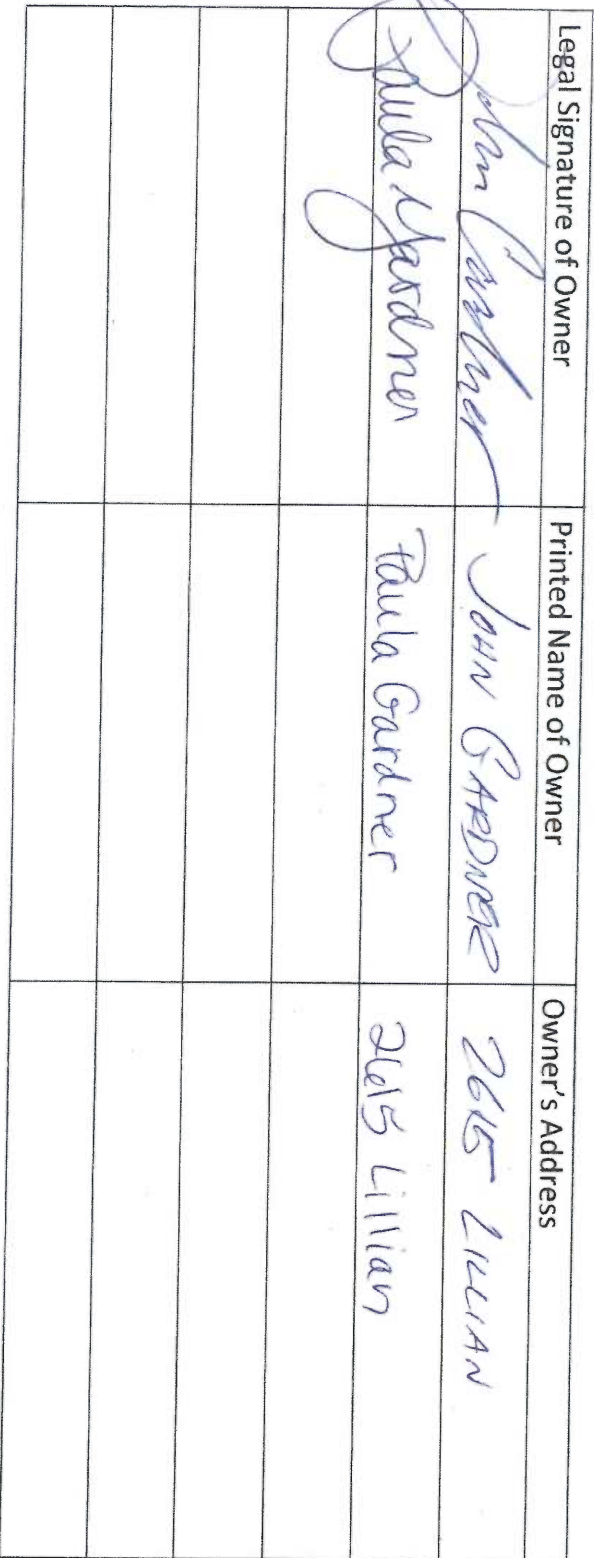 Legal Signature of Owner Printed Name of Owner Owner's Address
John Gardner JOHN GARDNER 2615 LILLIAN
Paula Gardner Paula Gardner 2615 Lillian